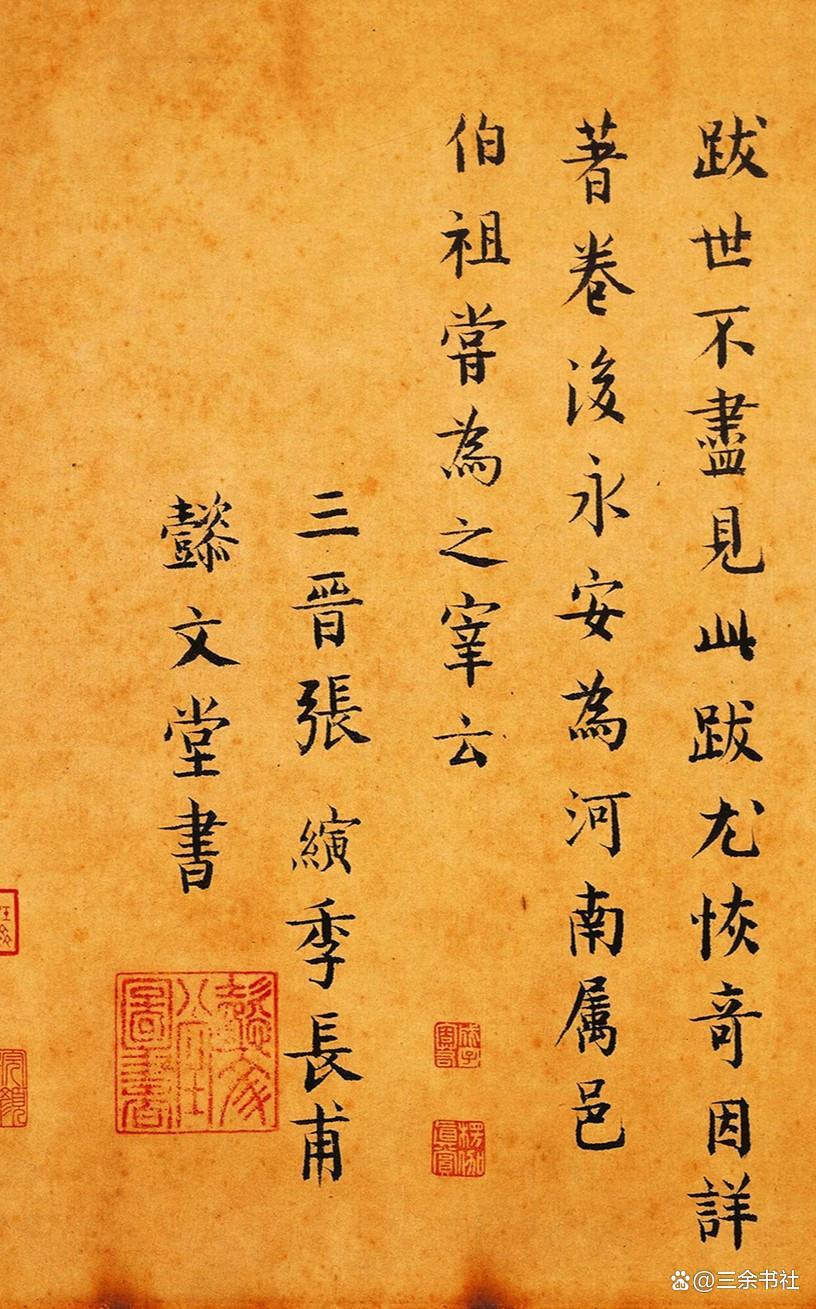 跋世不盡見此跋尤恢奇因詳
著卷後永安為河南屬邑
伯祖嘗為之宰云
三晉張縯季長甫
懿文堂書
楞伽
真賞
@三余书社